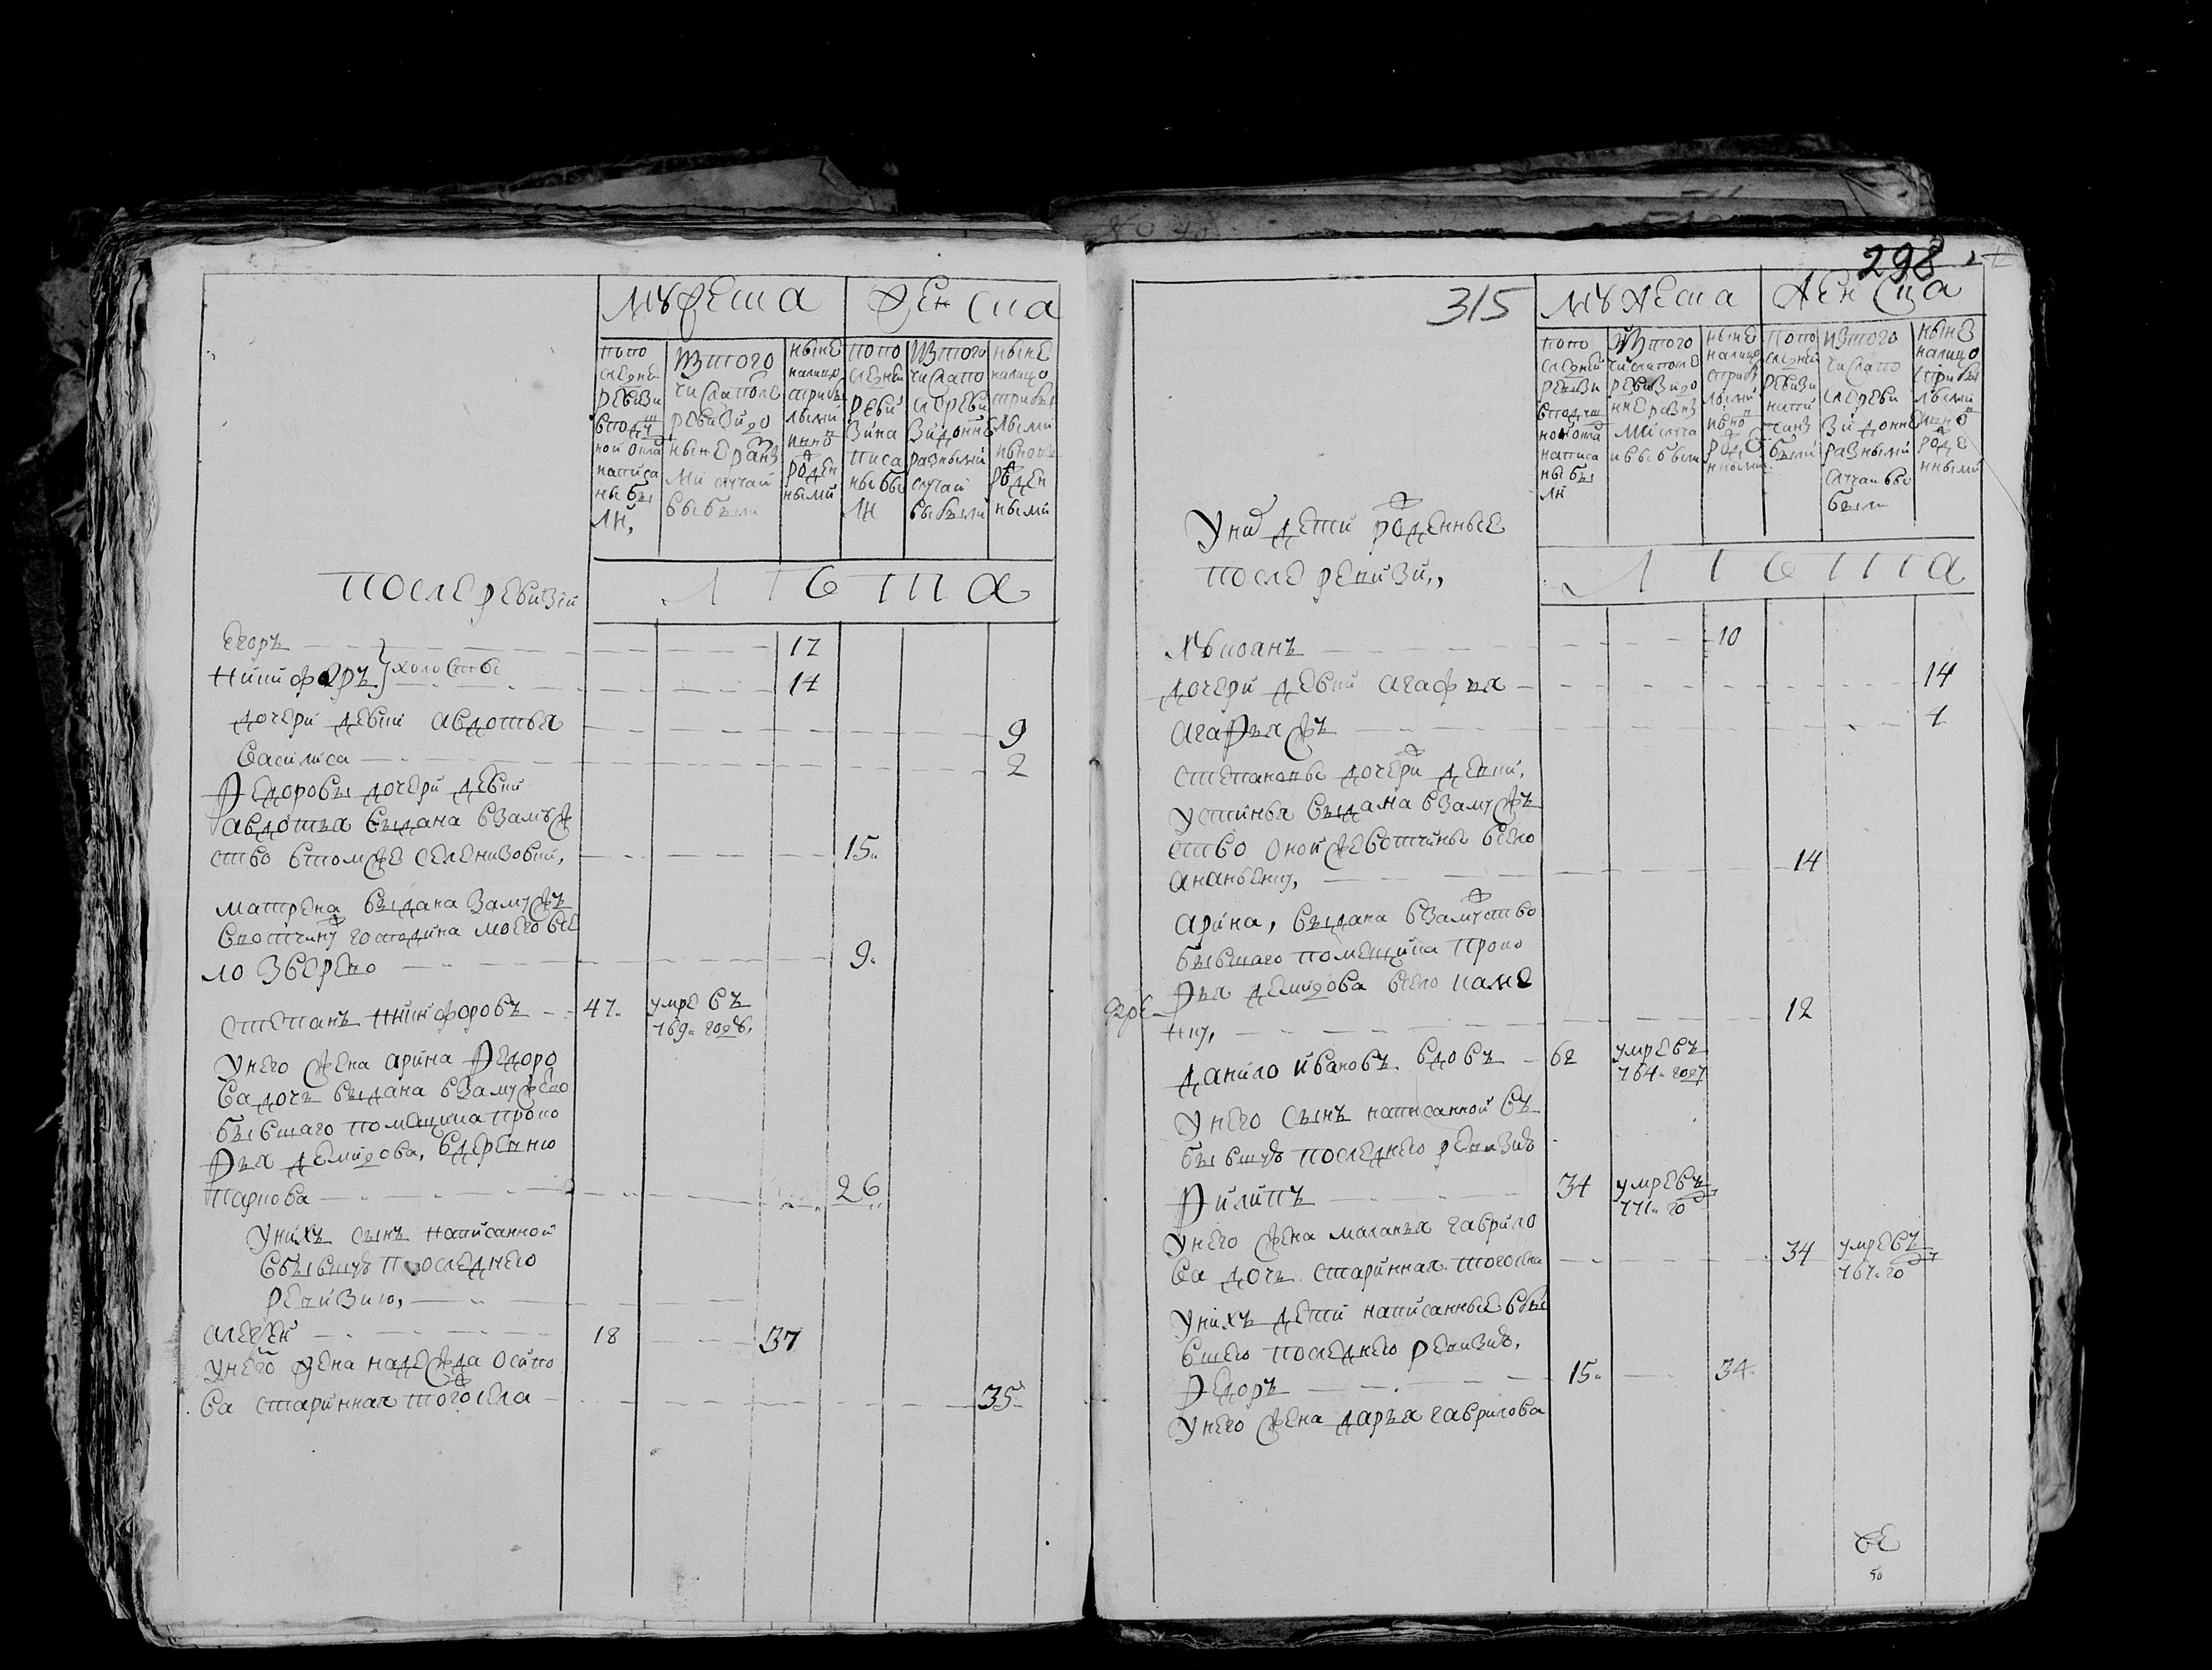 мужеска
женска
попо
следней
ревизи
вподуш
ной опла
написа
ны бы
ли,
изтого
числапосле
ревизии до
ныне разн
ми случаи
выбыли
ныне
налицо
сприбы
лыми
ивно
рожден
ными
попо
следней
реви
зи на
писа
ны бы
ли
изтого
числапо
следреви
зи доныне
разными
случаи
выбыли
ныне
налицо
сприбы
лыми
ивно
рожден
ными
после ревизии
лета
Егоръ 17
Никифоръ } холосты 14
дочери девки авдотья 9
Василиса 2
Федоровы дочери девки
авдотья выдана взамуж
ство втомже селенизовки, 15.
матрена выдана замужъ
ввотчину господина моего се
ло Зверево 9.
степанъ никифоровъ 47. умре въ
769. году.
Унего жена арина Федоро
ва дочь выдана взамужево
бывшаго помещика проко
фья демидова, вдеревню
Таркова 26
Унихъ сынъ написанной
вбывшую последнею
ревизию,
алексей 18 37
Унего жена надежда осипо
ва старинная тогожсела 35
298
315
мужеска
женска
попо
следней
ревизи
вподуш
ной опла
написа
ны бы
ли
изтого
числапосле
ревизи до
ныне разн
ми случа
и выбыли
ныне
налицо
сприбы
лыми
ивно
рожде
нными
попо
следней
ревизи
напи
саны
были
изтого
числапо
следреви
зи доныне
разными
случаи вы
были
ныне
налицо
сприбы
лыми
ивно
рожде
нными
Уних дети рожденные
после ревизи,,
лета
Лукианъ 10
дочери девки агафья 14
агафьяжъ 1
степановы дочери девки,
устинья выдана взамужъ
ство онойжевотчины всело
ананьену, 14
арина, выдана взамужство
бывшаго помещика проко
фья демидова всело каме
нку, 12
данило Ивановъ вдовъ 62 умре въ
764. году
Унего сынъ написанной въ
бывшую последнею ревизию
Филипъ 34 умре въ
771. го
Унего жена маланья гаврило
ва дочь старинная тогосела 34 умре въ
767. го
Унихъ дети написанные вбы
вшею последнею ревизию,
Федоръ 15. 34.
Унего жена дарья гаврилова
50